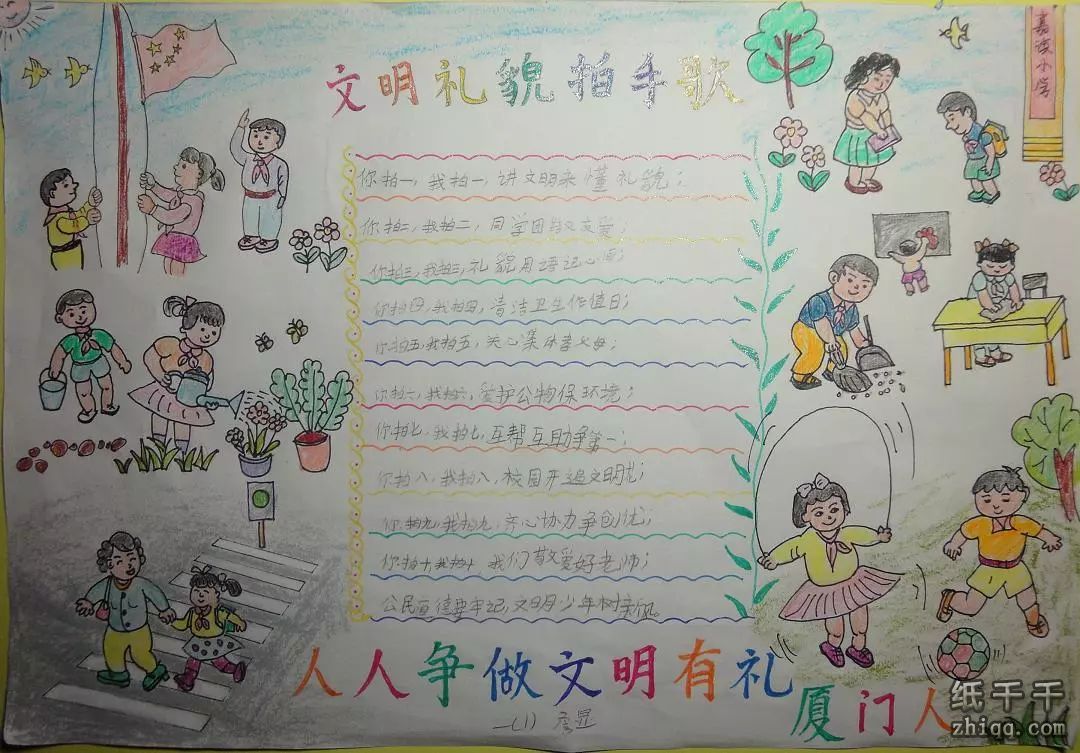 文明礼貌拍手歌
嘉滨小学
你拍一,我拍一,讲文明来懂礼貌;
你拍二,我拍二,同学团结又友爱;
你拍三,我拍三,礼貌用语记心间;
你拍四,我拍四,清洁卫生作值日;
你拍五,我拍五,关心集体孝父母;
你拍六,我拍六,爱护公物保环境;
你拍七,我拍七,互帮互助争第一;
你拍八,我拍八,校园开遍文明花;
你拍九,我拍九,齐心协力争创优;
你拍十,我拍十,我们敬爱好老师;
公民道德要牢记,文明少年树新风。
人人争做文明有礼
厦门人
一(1)
纸千千
zhiqq.com